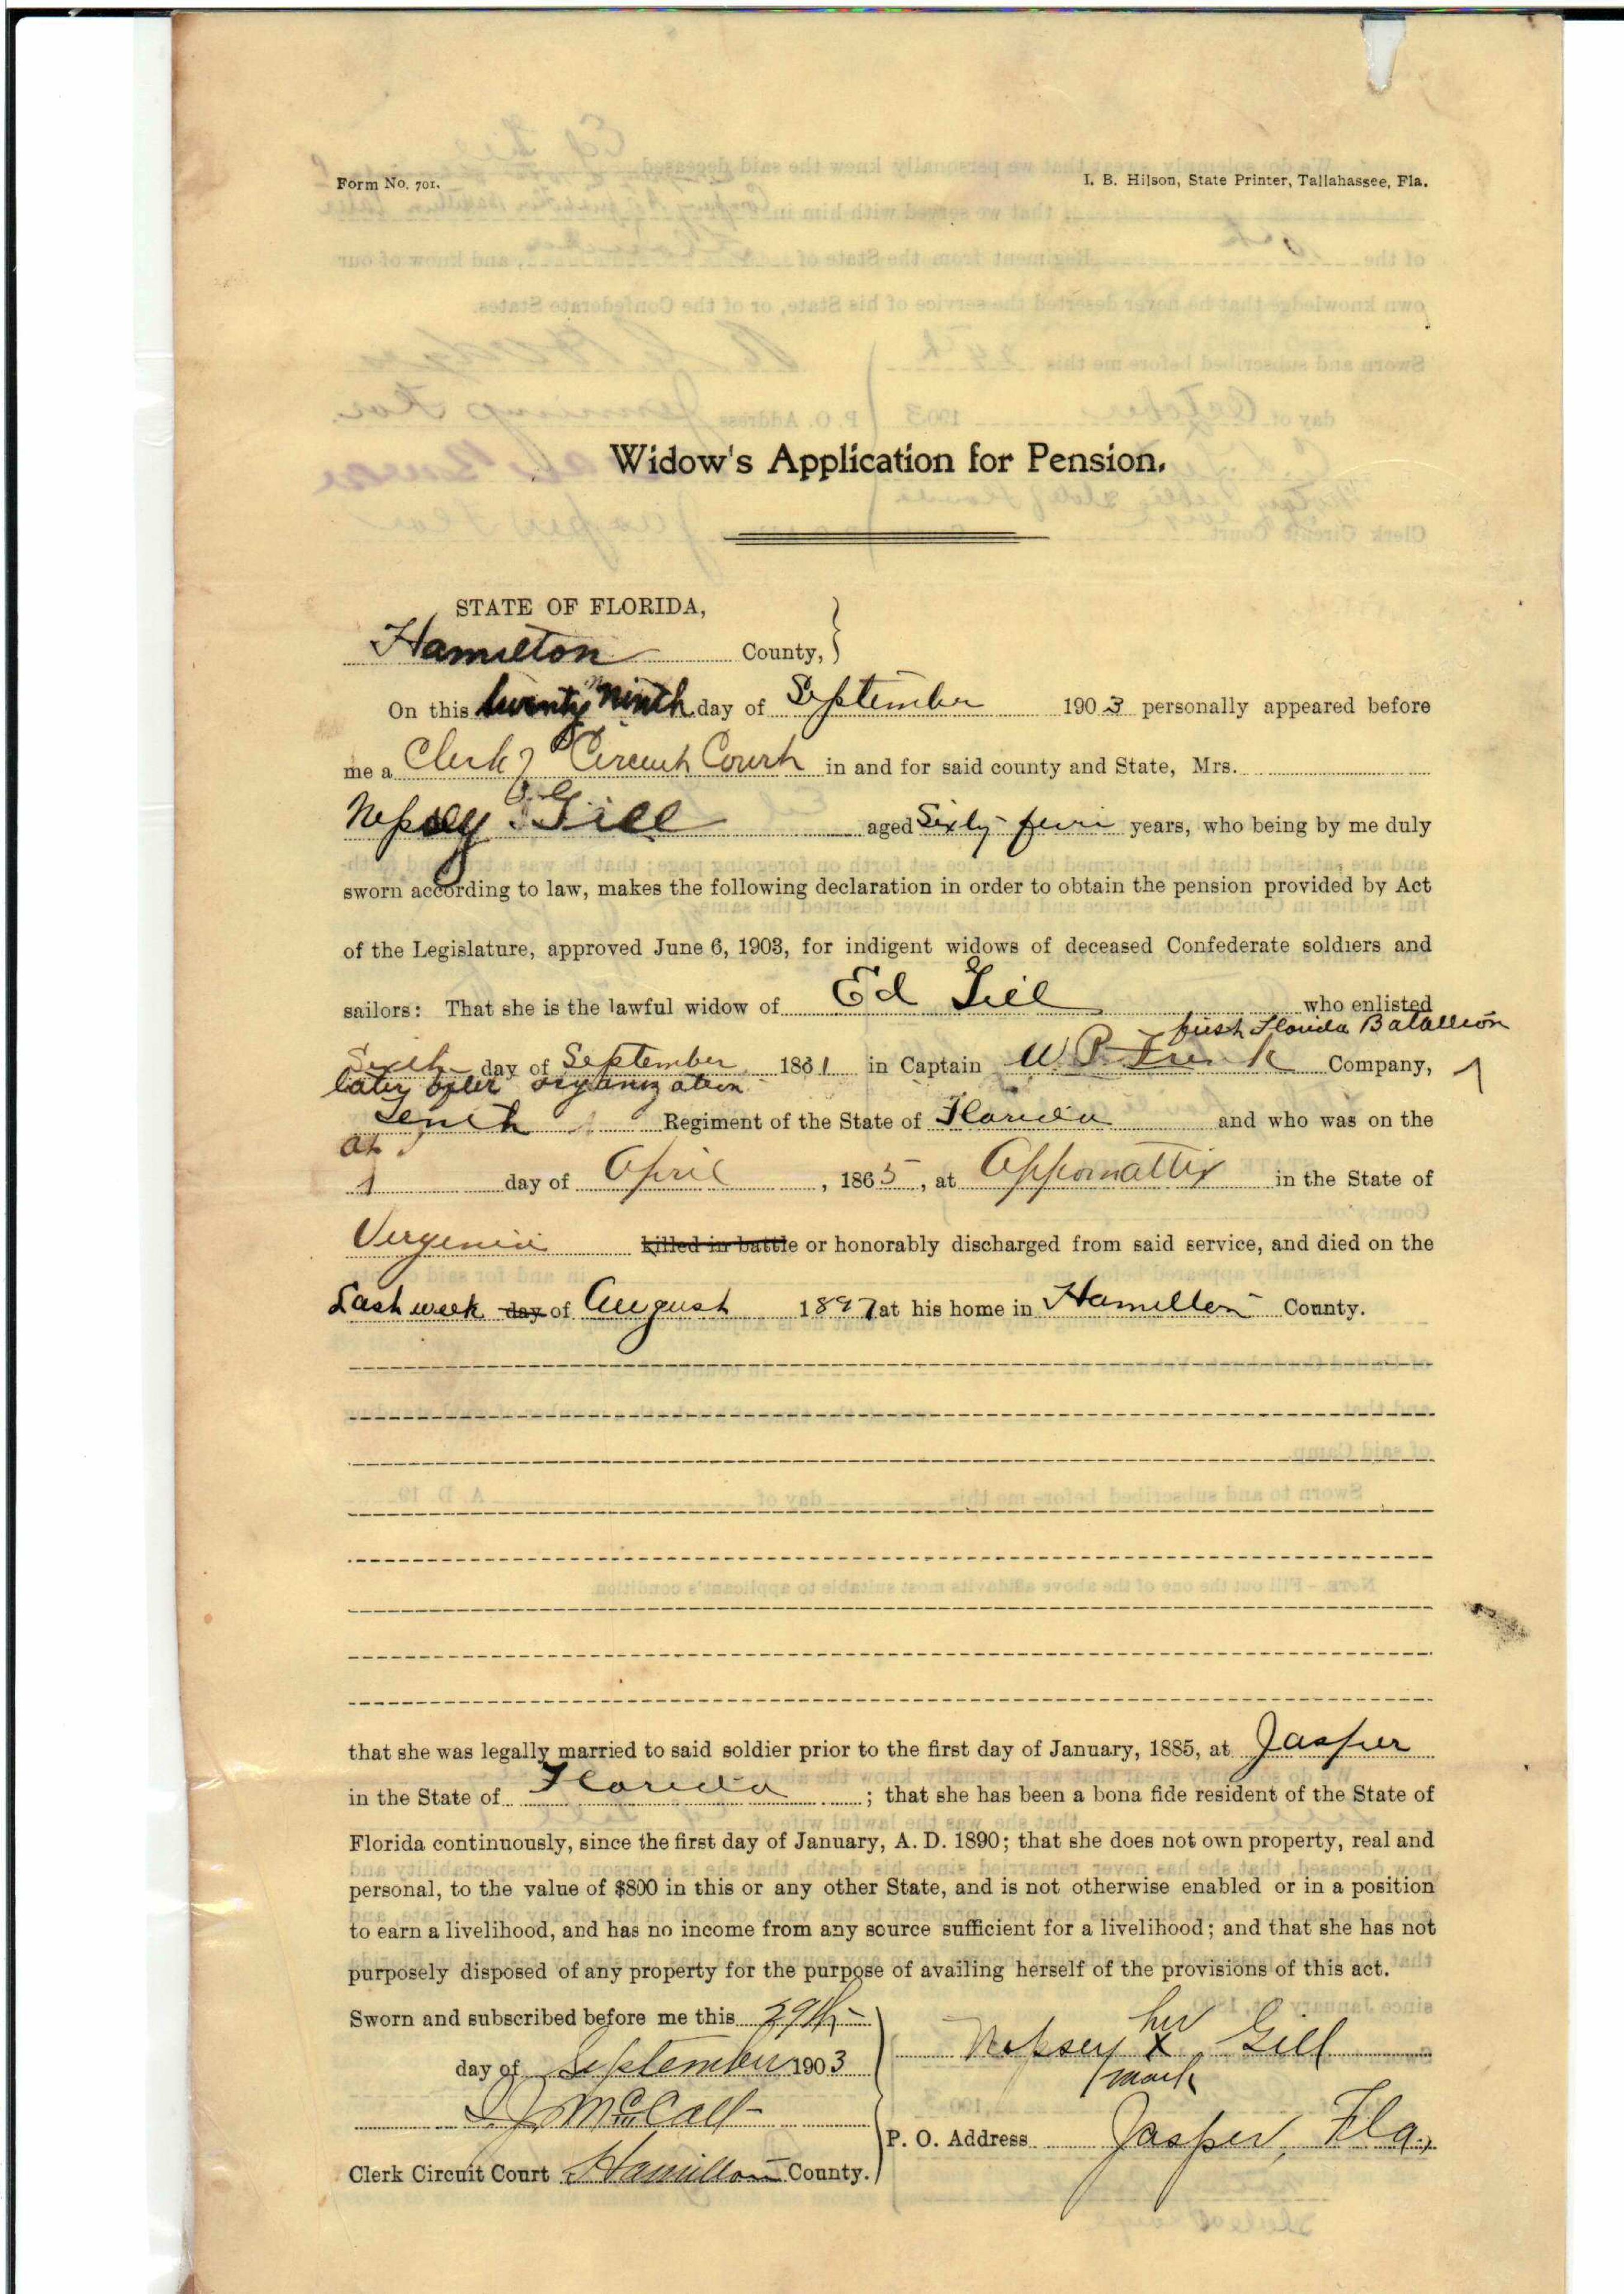 Form No. 701.
I. B. Hilson, State Printer, Tallahassee, Fla.
Widow's Application for Pension.
STATE OF FLORIDA,
Hamilton County,
On this twenty ninth day of September 1903 personally appeared before
me a Clerk of Circuit Court in and for said county and State, Mrs.
Nepsey Gill aged Sixty years, who being by me duly
sworn according to law, makes the following declaration in order to obtain the pension provided by Act
of the Legislature, approved June 6, 1903, for indigent widows of deceased Confederate soldiers and
sailors: That she is the lawful widow of Ed Gill who enlisted
first Florida Batallion
Sixth day of September 1861 in Captain W. P. Company,
later after organization
Tenth Regiment of the State of Florida and who was on the
at
day of April, 1865, at Appomattix in the State of
Vergenia killed in battle or honorably discharged from said service, and died on the
Last week day of August 1897 at his home in Hamilton County.
that she was legally married to said soldier prior to the first day of January, 1885, at Jasper
in the State of Florida; that she has been a bona fide resident of the State of
Florida continuously, since the first day of January, A. D. 1890; that she does not own property, real and
personal, to the value of $800 in this or any other State, and is not otherwise enabled or in a position
to earn a livelihood, and has no income from any source sufficient for a livelihood; and that she has not
purposely disposed of any property for the purpose of availing herself of the provisions of this act.
Sworn and subscribed before me this 29th
day of September 1903
McCall
Clerk Circuit Court Hamilton County.
her
Nepsey x Gill
mark
P. O. Address Jasper, Fla,